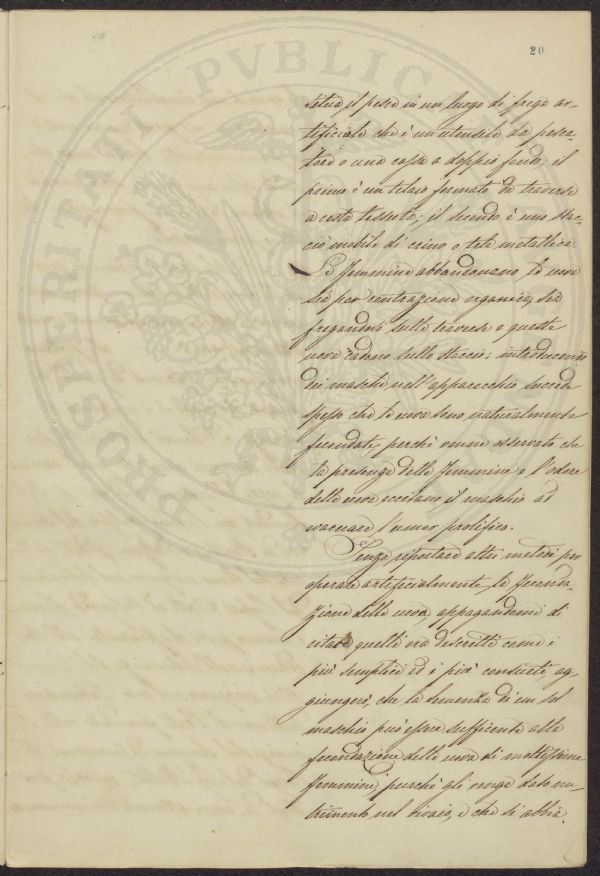 20
situa, il pesce in un luogo di frega ar-
tificiale che è un utensile da pesca-
tore o una cassa a doppio fondo; il
primo è un telaio formato da traverse
a ceste tessute; il secondo è uno stac-
cio mobile di crino o tela metallica.
Le femmine abbandonano le uova
sia per contrazione organica, sia
fregandosi sulle traverse e queste
uova cadono sullo staccio: introducendo
dei maschi nell'apparecchio succede
spesso che le uova sono naturalmente
fecondate, perchè venne osservato che
la presenza delle femmine e l'odore
delle uova eccitano il maschio ad
evacuare l'umor prolifico.
Senza riportare altri metodi per
operare artificialmente la feconda-
zione delle uova, appagandomi di
citare quelli ora descritti come i
più semplici ed i più consueti, ag-
giungerò, che la semenza di un sol
maschio può essere sufficente alla
fecondazione delle uova di moltissime
femmine, purchè gli venga dato nu-
trimento nel vivaio, e che si abbia
PROSPERITATI PVBLICAE